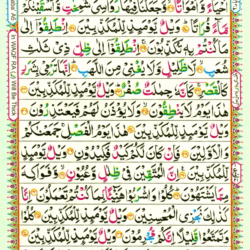 أَحْيَاءً وَأَمْوَاتًا وَجَعَلْنَا فِيهَا رَوَاسِيَ شَامِخَاتٍ وَأَسْقَيْنَاكُمْ
مَاءً فُرَاتًا وَيْلٌ يَوْمَئِذٍ لِلْمُكَذِّبِينَ انْطَلِقُوا إِلَى
مَا كُنْتُمْ بِهِ تُكَذِّبُونَ انْطَلِقُوا إِلَى ظِلٍّ ذِي ثَلَاثِ
شُعَبٍ لَا ظَلِيلٍ وَلَا يُغْنِي مِنَ اللَّهَبِ إِنَّهَا تَرْمِي بِشَرَرٍ
كَالْقَصْرِ كَأَنَّهُ جِمَالَتٌ صُفْرٌ وَيْلٌ يَوْمَئِذٍ لِلْمُكَذِّبِينَ
هَذَا يَوْمُ لَا يَنْطِقُونَ وَلَا يُؤْذَنُ لَهُمْ فَيَعْتَذِرُونَ
وَيْلٌ يَوْمَئِذٍ لِلْمُكَذِّبِينَ هَذَا يَوْمُ الْفَصْلِ جَمَعْنَاكُمْ
وَالْأَوَّلِينَ فَإِنْ كَانَ لَكُمْ كَيْدٌ فَكِيدُونِ وَيْلٌ يَوْمَئِذٍ
لِلْمُكَذِّبِينَ إِنَّ الْمُتَّقِينَ فِي ظِلَالٍ وَعُيُونٍ وَفَوَاكِهَ
مِمَّا يَشْتَهُونَ كُلُوا وَاشْرَبُوا هَنِيئًا بِمَا كُنْتُمْ تَعْمَلُونَ إِنَّا
كَذَلِكَ نَجْزِي الْمُحْسِنِينَ وَيْلٌ يَوْمَئِذٍ لِلْمُكَذِّبِينَ كُلُوا
وَتَمَتَّعُوا قَلِيلًا إِنَّكُمْ مُجْرِمُونَ وَيْلٌ يَوْمَئِذٍ لِلْمُكَذِّبِينَ